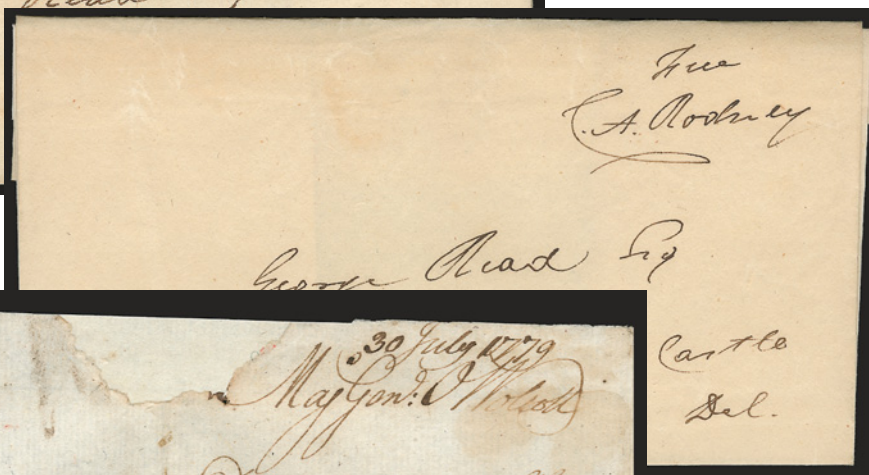 Free
C. A. Rodney
George Read Esq
Castle
Del.
30 July 1779
Maj Genl: O Wolcott